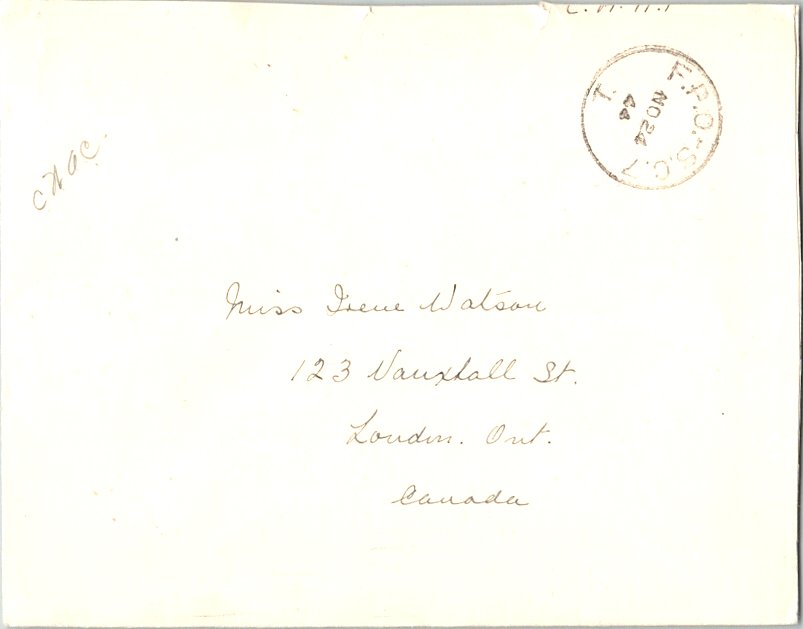 F.P.O.-S.C.7
T.
NO 24
44
Miss Irene Watson
123 Vauxhall St.
London. Ont.
Canada